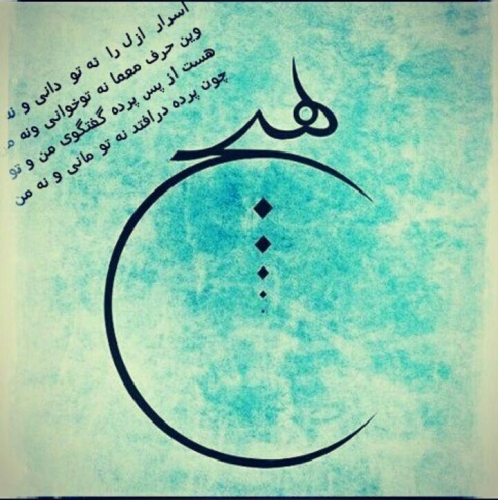 اسرار ازل را نه تو دانی و نه
وین حرف معما نه توخوانی ونه
هست از پس پرده گفتگوی من و تو
چون پرده درافتد نه تو مانی و نه من
هیچ